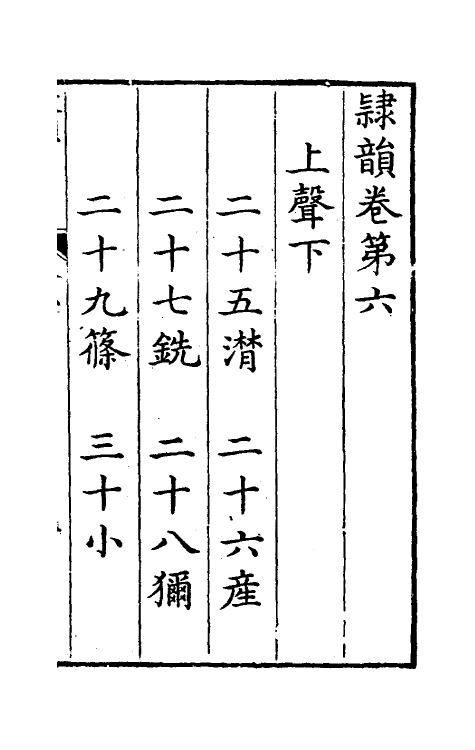 隷韻卷第六
上聲下
二十五潸 二十六產
二十七銑 二十八獮
二十九篠 三十小